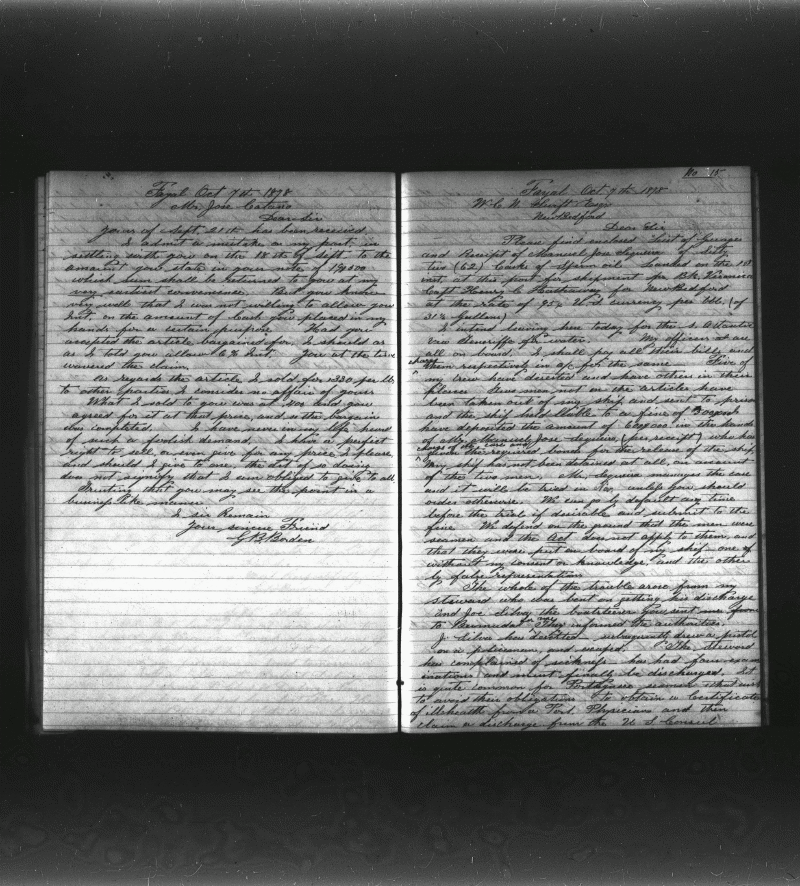 Fayal Oct 9th 1878
Mr Jose Catano
Dear Sir
Yours of Sept 21st has been received
I admit a mistake on my part in
settling with you on the 18th of Sept. to the
amount you state in your note of
which sum shall be returned to you at my
very earliest convenience. But you know
very well that I was not willing to allow you
Int. on the amount of Cash you placed in my
hands for a certain purpose. Had you
accepted the article bargained for, I should as
as I told you allow 6% Int. You at the time
waivered the claim.
As regards the article I sold for per lb
to other parties I consider no affair of yours
What I sold to you was for and you
agreed for it at that price, and so the bargain
was completed. I have never in my life heard
of such a foolish demand. I have a perfect
right to sell or even give for any price I please
and should I give to one, the act of so doing
does not signify that I am obliged to give to all.
Trusting that you may see the point in a
business like manner
I sir Remain
Your sincere Friend
G.B. Borden
No 15
Fayal Oct 9th 1878
W.C.N. Swift Esqr
New Bedford
Dear Sir
Please find enclosed List of Guages
and Receipt of Manuel Jose Sequeira of sixty
two (62) Casks of Sperm oil landed on the 1st
inst. at this port for
Capt Henry for New Bedford
at the rate of 95¢ currency per bbl. (of
31½ Gallons)
I intend leaving here today for the S. Atlantic
via Teneriffe for water. My officers are
all on board. I shall pay all their bills and
charge them respectively in a/c for the same. Five of
my crew have deserted and have others in their
places. Two men the article have
been taken out of my ship and sent to prison
and the ship held liable to a fine of
have deposited the amount of in the hands
of Manuel Jose Sequeira (per receipt) who has
given the required bond for the release of the ship.
My ship has not been detained at all, on account
of the two men. Mr. Sequeira manages the case
and it will be tried in unless you should
order otherwise. We can go by default any time
before the trial if desirable and submit to the
fine. We defend on the ground that the men were
seamen and the Act does not apply to them, and
that they were put on board of my ship one of
without my consent or knowledge, and the other
by false representation
The whole of the trouble arose from my
steward who was bent on getting his discharge
and Joe Silvey the boatsteerer you sent me from
to Bermuda. They informed the authorities.
J. Silva has deserted subsequently drew a pistol
on a policeman, and escaped. The Steward
has complained of sickness has had four exam
inations and must finally be discharged. It
is quite common for Portuguese seamen that wish
to avoid their obligation to obtain a Certificate
of illhealth from a Port Physician and then
claim a discharge from the U S Consul